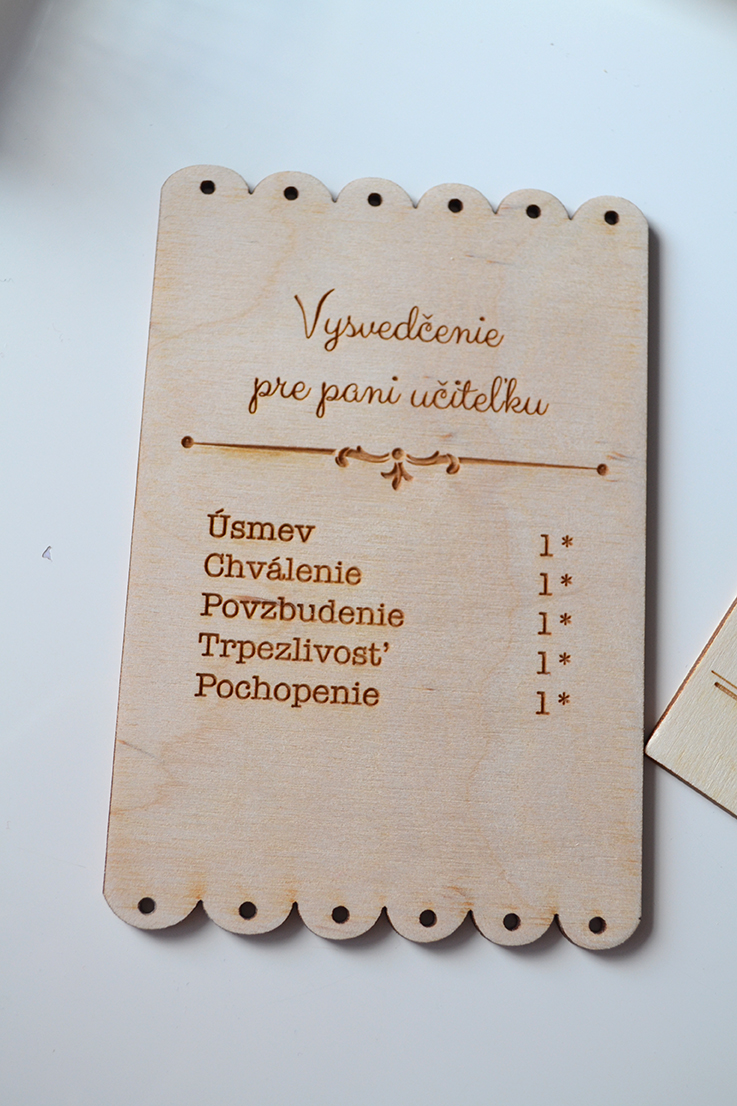 Vysvedčenie
pre pani učiteľku
Úsmev 1*
Chválenie 1*
Povzbudenie 1*
Trpezlivosť 1*
Pochopenie 1*